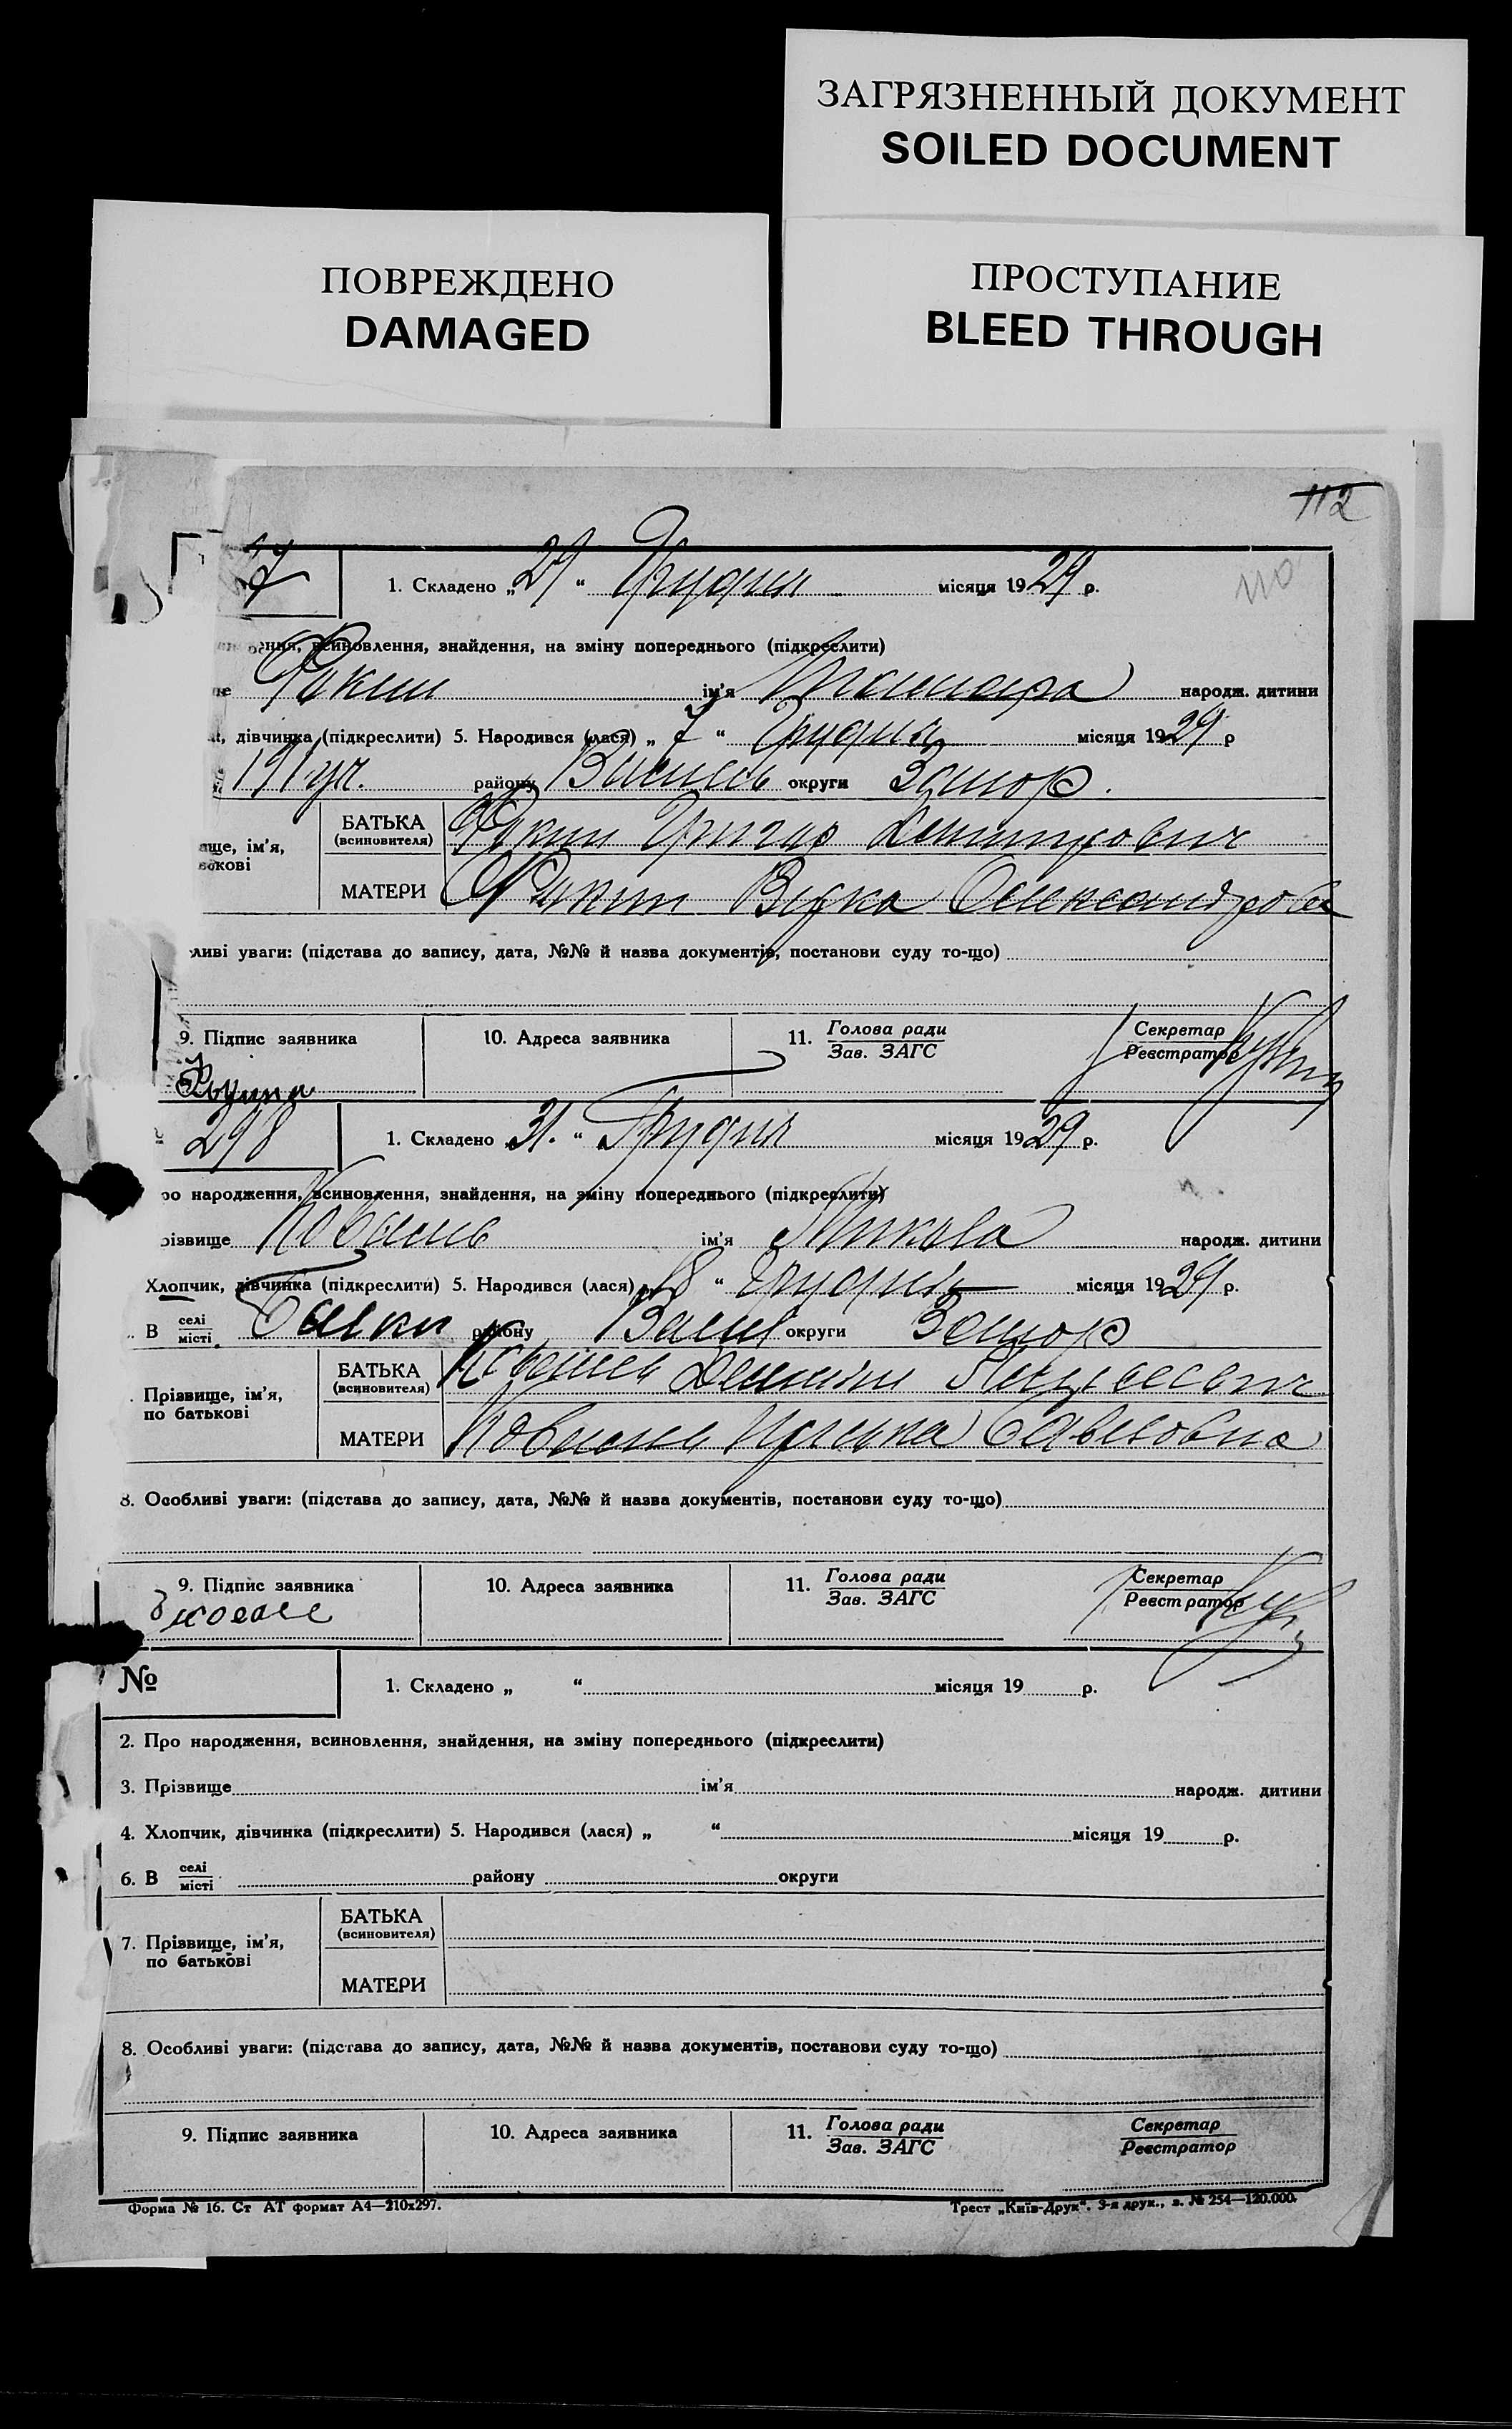 ЗАГРЯЗНЕННЫЙ ДОКУМЕНТ
SOILED DOCUMENT
ПОВРЕЖДЕНО
DAMAGED
ПРОСТУПАНИЕ
BLEED THROUGH
112
110
1. Складено „29“ Грудня місяця 1929 р.
всиновлення, знайдення, на зміну попереднього (підкреслити)
ім'я Тамара народж. дитини
дівчинка (підкреслити) 5. Народився (лася) „7“ Грудня місяця 1929 р
району округи Запор.
ім'я,
БАТЬКА
(всиновителя)
Григор Дмитрович
МАТЕРИ
Олександровн
уваги: (підстава до запису, дата, №№ й назва документів, постанови суду то-що)
9. Підпис заявника 10. Адреса заявника 11. Голова ради
Зав. ЗАГС
Секретар
Реєстратор
298 1. Складено 31. “ Грудня місяця 1929 р.
народження, всиновлення, знайдення, на зміну попереднього (підкреслити)
Коваль ім'я Микола народж. дитини
Хлопчик, дівчинка (підкреслити) 5. Народився (лася) „18“ Грудня місяця 1929 р.
В селі
місті Балки району Васил округи Запор
Прізвище, ім'я,
по батькові
БАТЬКА
(всиновителя)
Коваль
МАТЕРИ
Коваль Савеловна
8. Особливі уваги: (підстава до запису, дата, №№ й назва документів, постанови суду то-що)
9. Підпис заявника 10. Адреса заявника 11. Голова ради
Зав. ЗАГС
Секретар
Реєстратор
№ 1. Складено „ “ місяця 19 р.
2. Про народження, всиновлення, знайдення, на зміну попереднього (підкреслити)
3. Прізвище ім'я народж. дитини
4. Хлопчик, дівчинка (підкреслити) 5. Народився (лася) „ “ місяця 19 р.
6. В селі
місті району округи
7. Прізвище, ім'я,
по батькові
БАТЬКА
(всиновителя)
МАТЕРИ
8. Особливі уваги: (підстава до запису, дата, №№ й назва документів, постанови суду то-що)
9. Підпис заявника 10. Адреса заявника 11. Голова ради
Зав. ЗАГС
Секретар
Реєстратор
Форма № 16. Ст АТ формат А4—210х297. Трест „Київ-Друк“. 3-я друк., з. № 254—120.000.